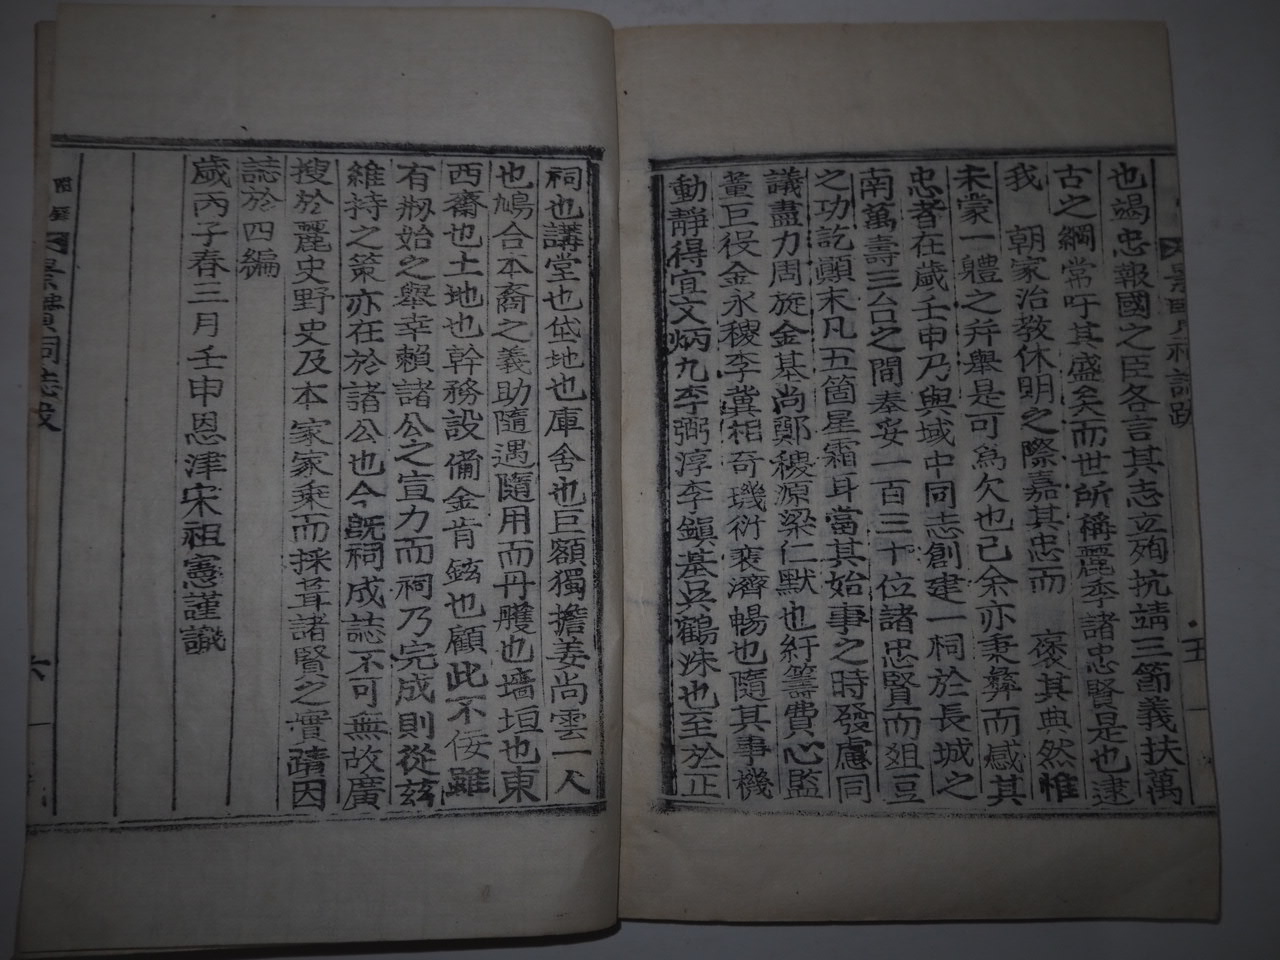 也竭忠報國之臣各言其志立殉抗靖三節義扶萬
古之綱常吁其盛矣而世所稱麗季諸忠賢是也逮
我 朝家治敎休明之際嘉其忠而 褒其典然惟
未蒙一軆之幷舉是可為欠也已余亦秉彜而感其
忠者在歲壬申乃與域中同志創建一祠於長城之
南萬壽三台之間奉妥一百三十位諸忠賢而俎豆
之功訖顚末凡五箇星霜耳當其始事之時發慮同
議盡力周旋金基尚鄭稷源梁仁默也紆籌費心監
董巨役金永稷李冀相奇璣衍裵濟暢也隨其事機
動靜得宜文炳九李弼淳李鎭基吳鶴洙也至於正
祠也講堂也垈地也庫舍也巨額獨擔姜尚雲一人
也鳩合本裔之義助隨遇隨用而丹雘也墻垣也東
西齋也土地也幹務設備金肯鉉也顧此不佞雖
有刱始之舉幸賴諸公之宣力而祠乃完成則從玆
維持之策亦在於諸公也今旣祠成誌不可無故廣
搜於麗史野史及本家家乘而採茸諸賢之實蹟因
誌於四編
歲丙子春三月壬申恩津宋祖憲謹識
景賢祠誌跋
五
六